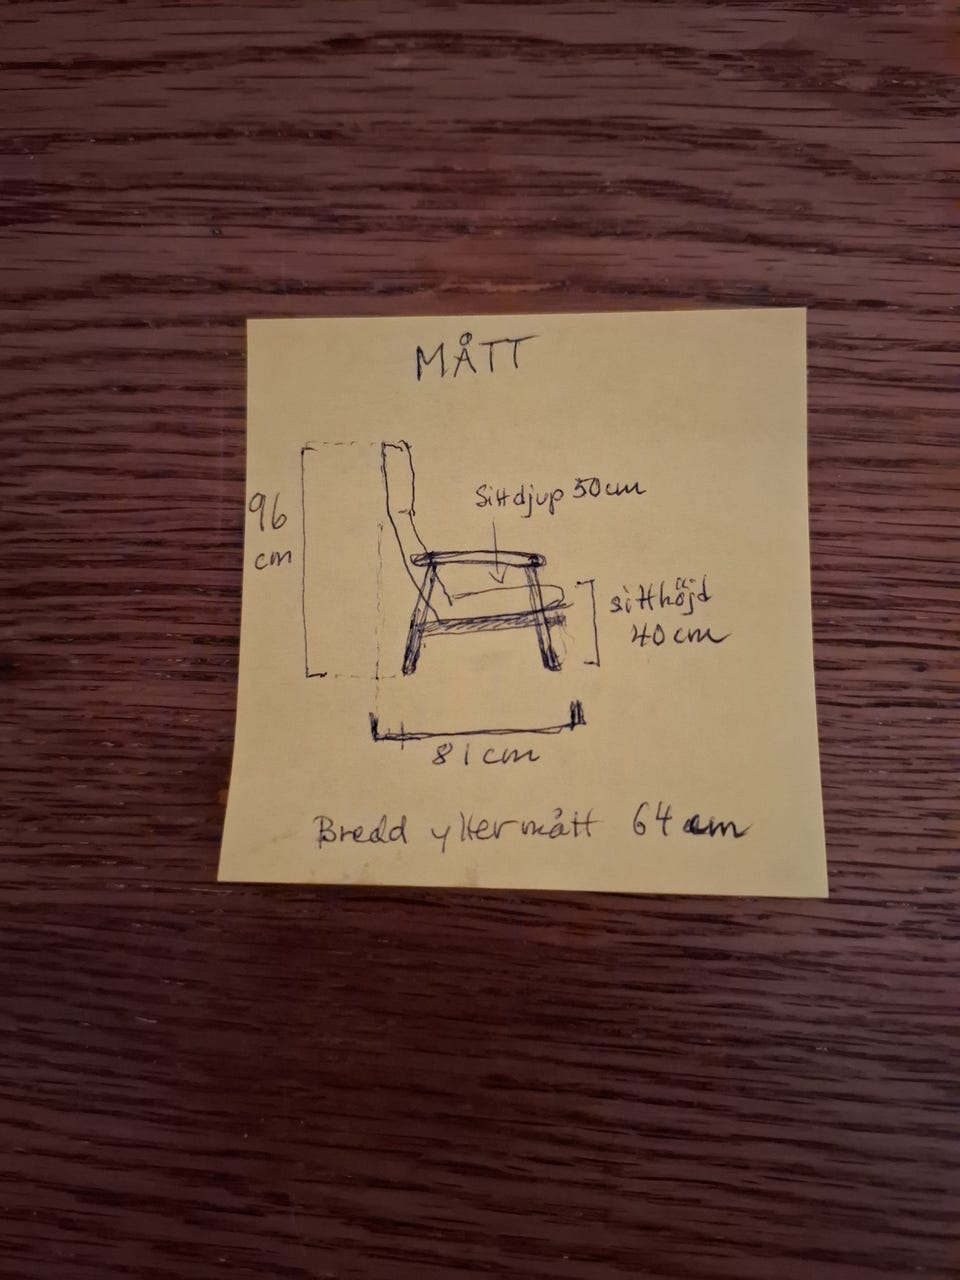 MÅTT
96
cm
Sittdjup 50cm
sitthöjd
40cm
81cm
Bredd yttermått 64 cm